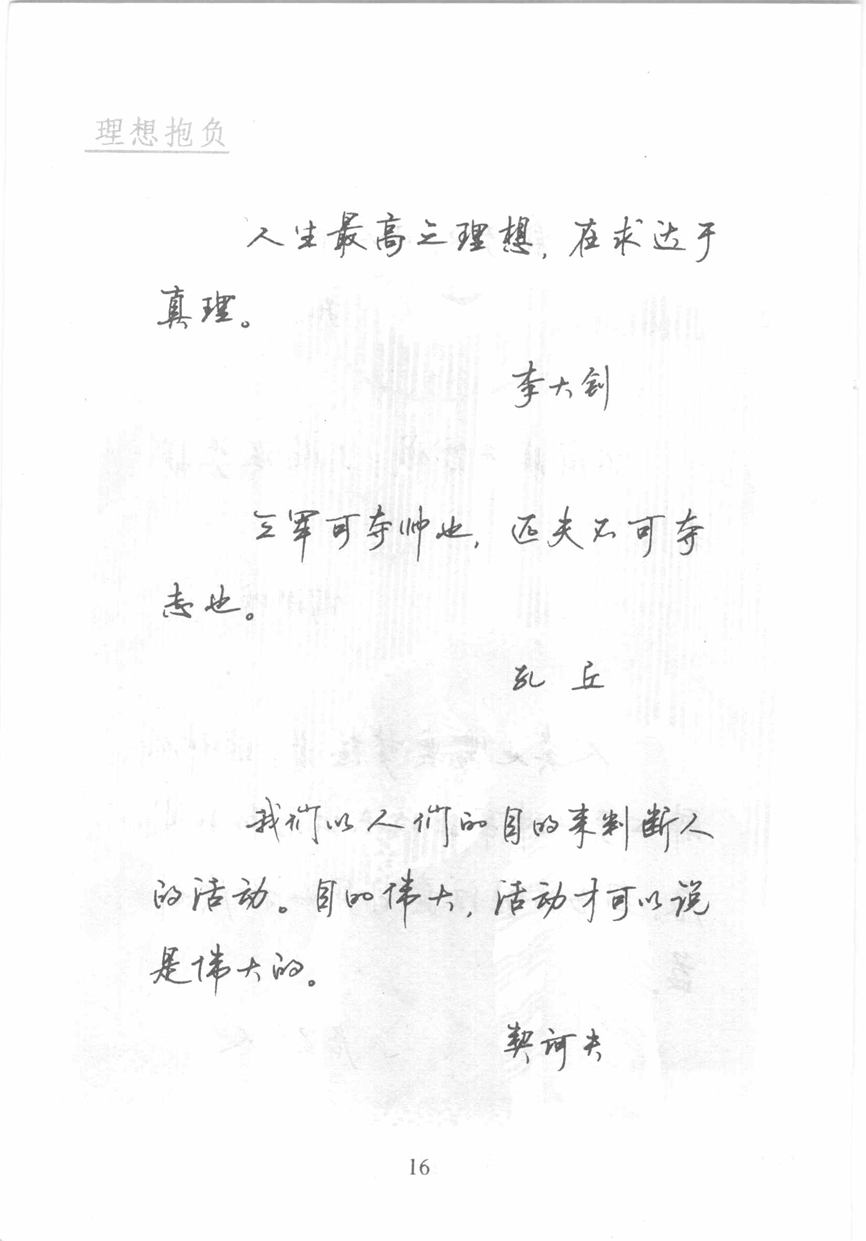 理想抱负
人生最高之理想,在求达于
真理。
李大钊
三军可夺帅也,匹夫不可夺
志也。
孔 丘
我们以人们的目的来判断人
的活动。目的伟大,活动才可以说
是伟大的。
契诃夫
16